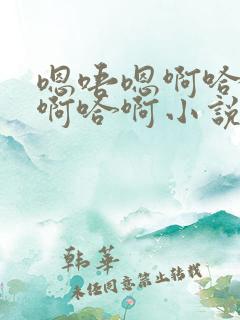 嗯唔嗯啊哈
啊哈啊小說
韩華
未经同意禁止转载